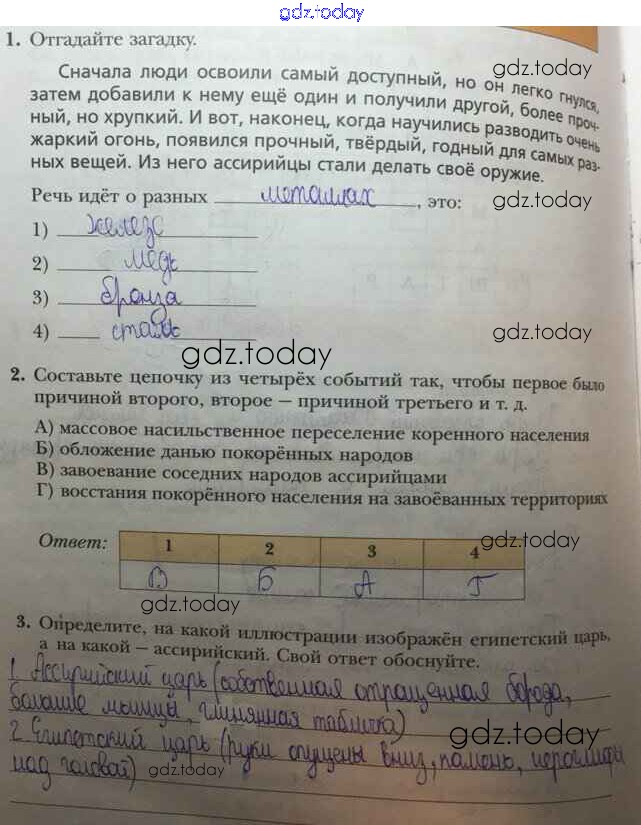 gdz.today
1. Отгадайте загадку.
gdz.today
Сначала люди освоили самый доступный, но он легко гнулся,
затем добавили к нему ещё один и получили другой, более проч-
ный, но хрупкий. И вот, наконец, когда научились разводить очень
жаркий огонь, появился прочный, твёрдый, годный для самых раз-
ных вещей. Из него ассирийцы стали делать своё оружие.
Речь идёт о разных металлах, это:
gdz.today
1) железо
2) медь
3) бронза
4) сталь
gdz.today
gdz.today
2. Составьте цепочку из четырёх событий так, чтобы первое было
причиной второго, второе — причиной третьего и т. д.
А) массовое насильственное переселение коренного населения
Б) обложение данью покорённых народов
В) завоевание соседних народов ассирийцами
Г) восстания покорённого населения на завоёванных территориях
Ответ: 1 2 3 4
gdz.today
В Б А Г
gdz.today
3. Определите, на какой иллюстрации изображён египетский царь,
а на какой — ассирийский. Свой ответ обоснуйте.
1. Ассирийский царь (собственная отращенная борода,
большие мышцы, глинянная табличка)
gdz.today
2. Египетский царь (руки опущены вниз, иероглифы
над головой)
gdz.today